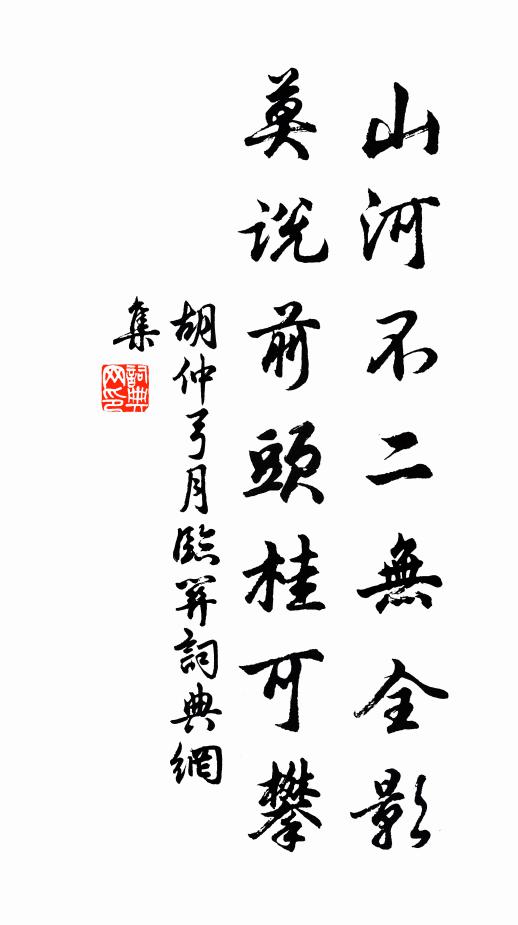 山河不二無全影
莫説前頭桂可攀
胡仲弓月臨笄詞典網
集
詞典網印